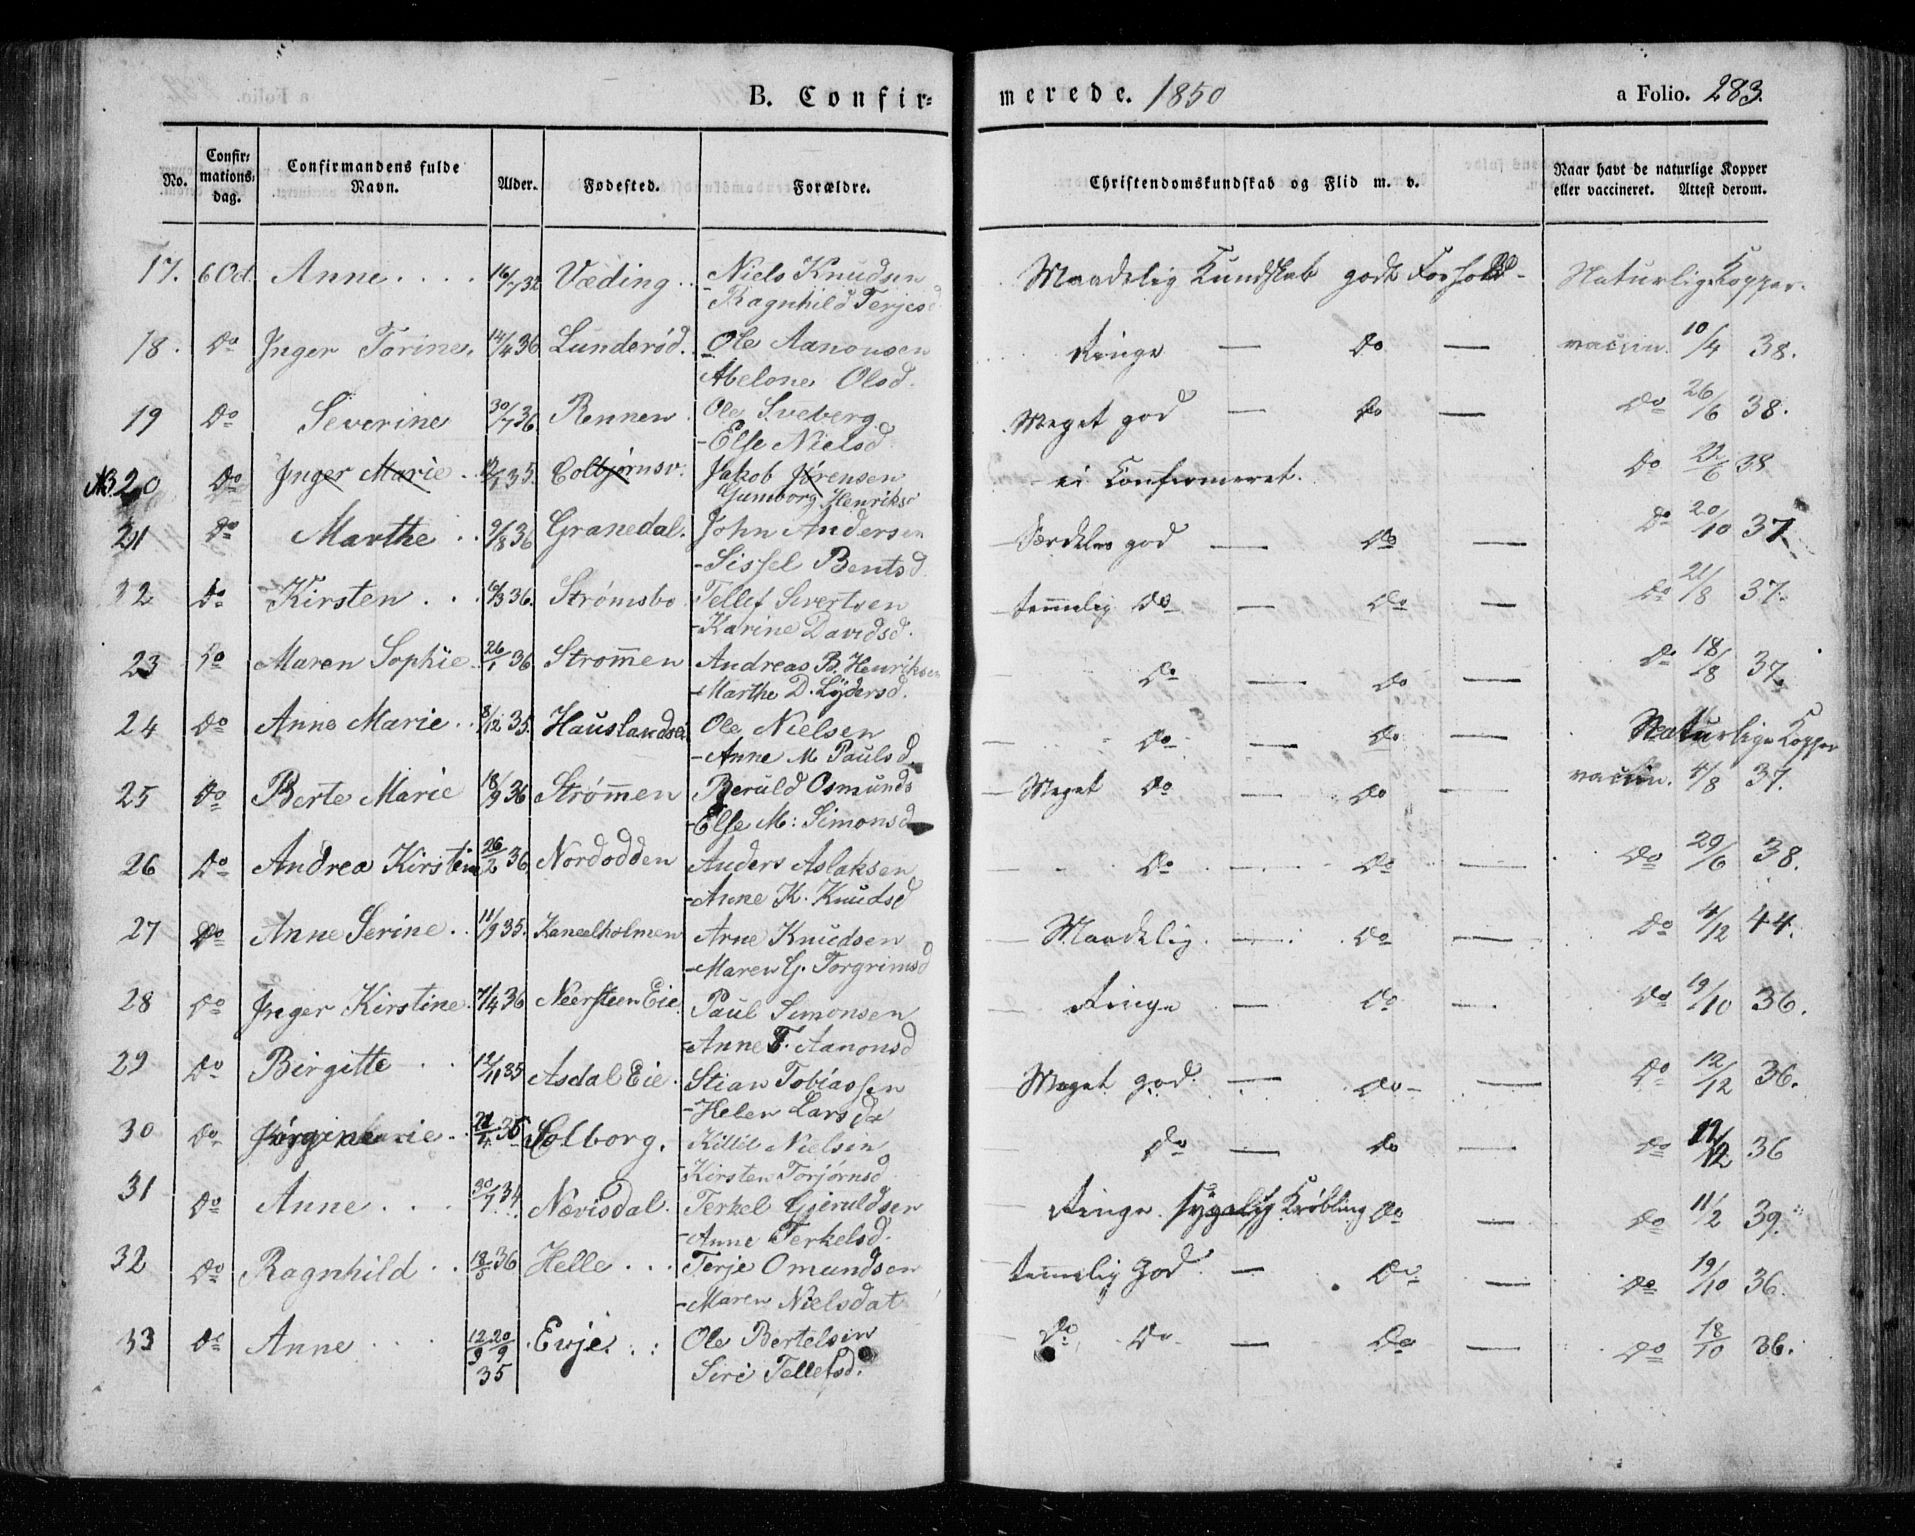 B. Confir=
merede. 1850
a Folio. 283.
No.
Confir= mations= dag.
Confirmandens fulde Navn.
Alder.
Fødested.
Forældre.
Christendomskundskab og Flid m. v.
Naar havt de naturlige Kopper eller vaccineret. Attest derom.
17. 6 Oct. Anne . . . . 16/7 32 Væding . . Niels Knudsen Maadelig Kundskab godt Forhold - Naturlige Kopper.
- Ragnhild Terjesd
18. Do Inger Torine. 14/4 36 Lunderød. Ole Aanonsen Ringe — Do — vaccin. 10/4 38.
- Abelone Olsd.
19 Do Severine 30/7 36 Rennen. Ole Sveberg Meget god — Do — Do 26/6 38.
- Else Nielsd
NB 20 Do Inger Marie . 35. Colbjørnsv. Jakob Jørensen - ei Confirmeret. Do 38
Gumborg Henriksd
21 Do Marthe . . 9/8 36 Granedal. John Andersen Særdeles god — Do — Do 20/10 37
- Sissel Bentsd
32 Do Kirsten . . 36. Strømsbo Tellef Sivertsen temmelig Do — Do — Do 21/8 37.
- Karine Davidsd.
23 Do Maren Sophie 26/1 36 Strømmen Andreas B. Henriksen Do — Do — Do 18/8 37.
- Marthe D. Lydersd.
24 Do Anne Marie . . 8/12 35. Hauslandsei Ole Nielsen Do — Do — Naturlige Kopper
- Anne M Paulsd
25 Do Berte Marie 18/9 36 Strømmen Beruld Osmunds Meget Do — Do — vaccin. 4/8 37.
- Else M: Simonsd
26 Do Andrea Kirstine 26/2 36 Nordodden Anders Aslaksen Do — Do — Do 29/6 38.
- Anne K. Knudsd
27 Do Anne Serine . . 11/9 35. Kaneelholmen Arne Knudsen Maadelig — Do — Do 4/12 44.
- Maren G. Torgrimsd
28 Do Inger Kirstine. 7/4 36 Neersteen Eie. Paul Simonsen Ringe — Do — Do 19/10 36.
- Anne T. Aanonsd
29 Do Birgitte . . 12/11 35 Asdal Eie. Stian Tobiassen Meget god. — Do — Do 12/12 36.
- Helen Larsda
30 Do . . Solborg. Killil Nielsen Do — Do — Do 12/12 36
Kirsten Torjørnsd
31 Do Anne . . . 30/7 34 Nævisdal. Terkel Gjeruldsen Ringe. sygelig Krøbling Do — Do 11/2 39.
- Anne Terkelsd.
32 Do Ragnhild . . 18/5 36 Helle . . . Terje Omundsen temmelig God. — Do — Do 19/10 36.
- Maren Nielsdat
33 Do Anne . . . 12/9 20/9 Evje. . : Ole Bertelsen Do Do — Do — Do 18/10 36.
35 Siri Tellefsd.